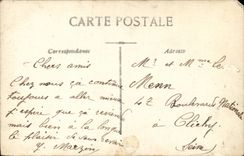 CARTE POSTALE
Correspondance
Adresse
Chers amis
Chez nous ça continue
toujours à aller mieux
J'espère que ça
mais bien à la
le plaisir de vous
Y. Marzin
Mr et Mme Le
Menn
42 Boulevard National
à Clichy
Seine